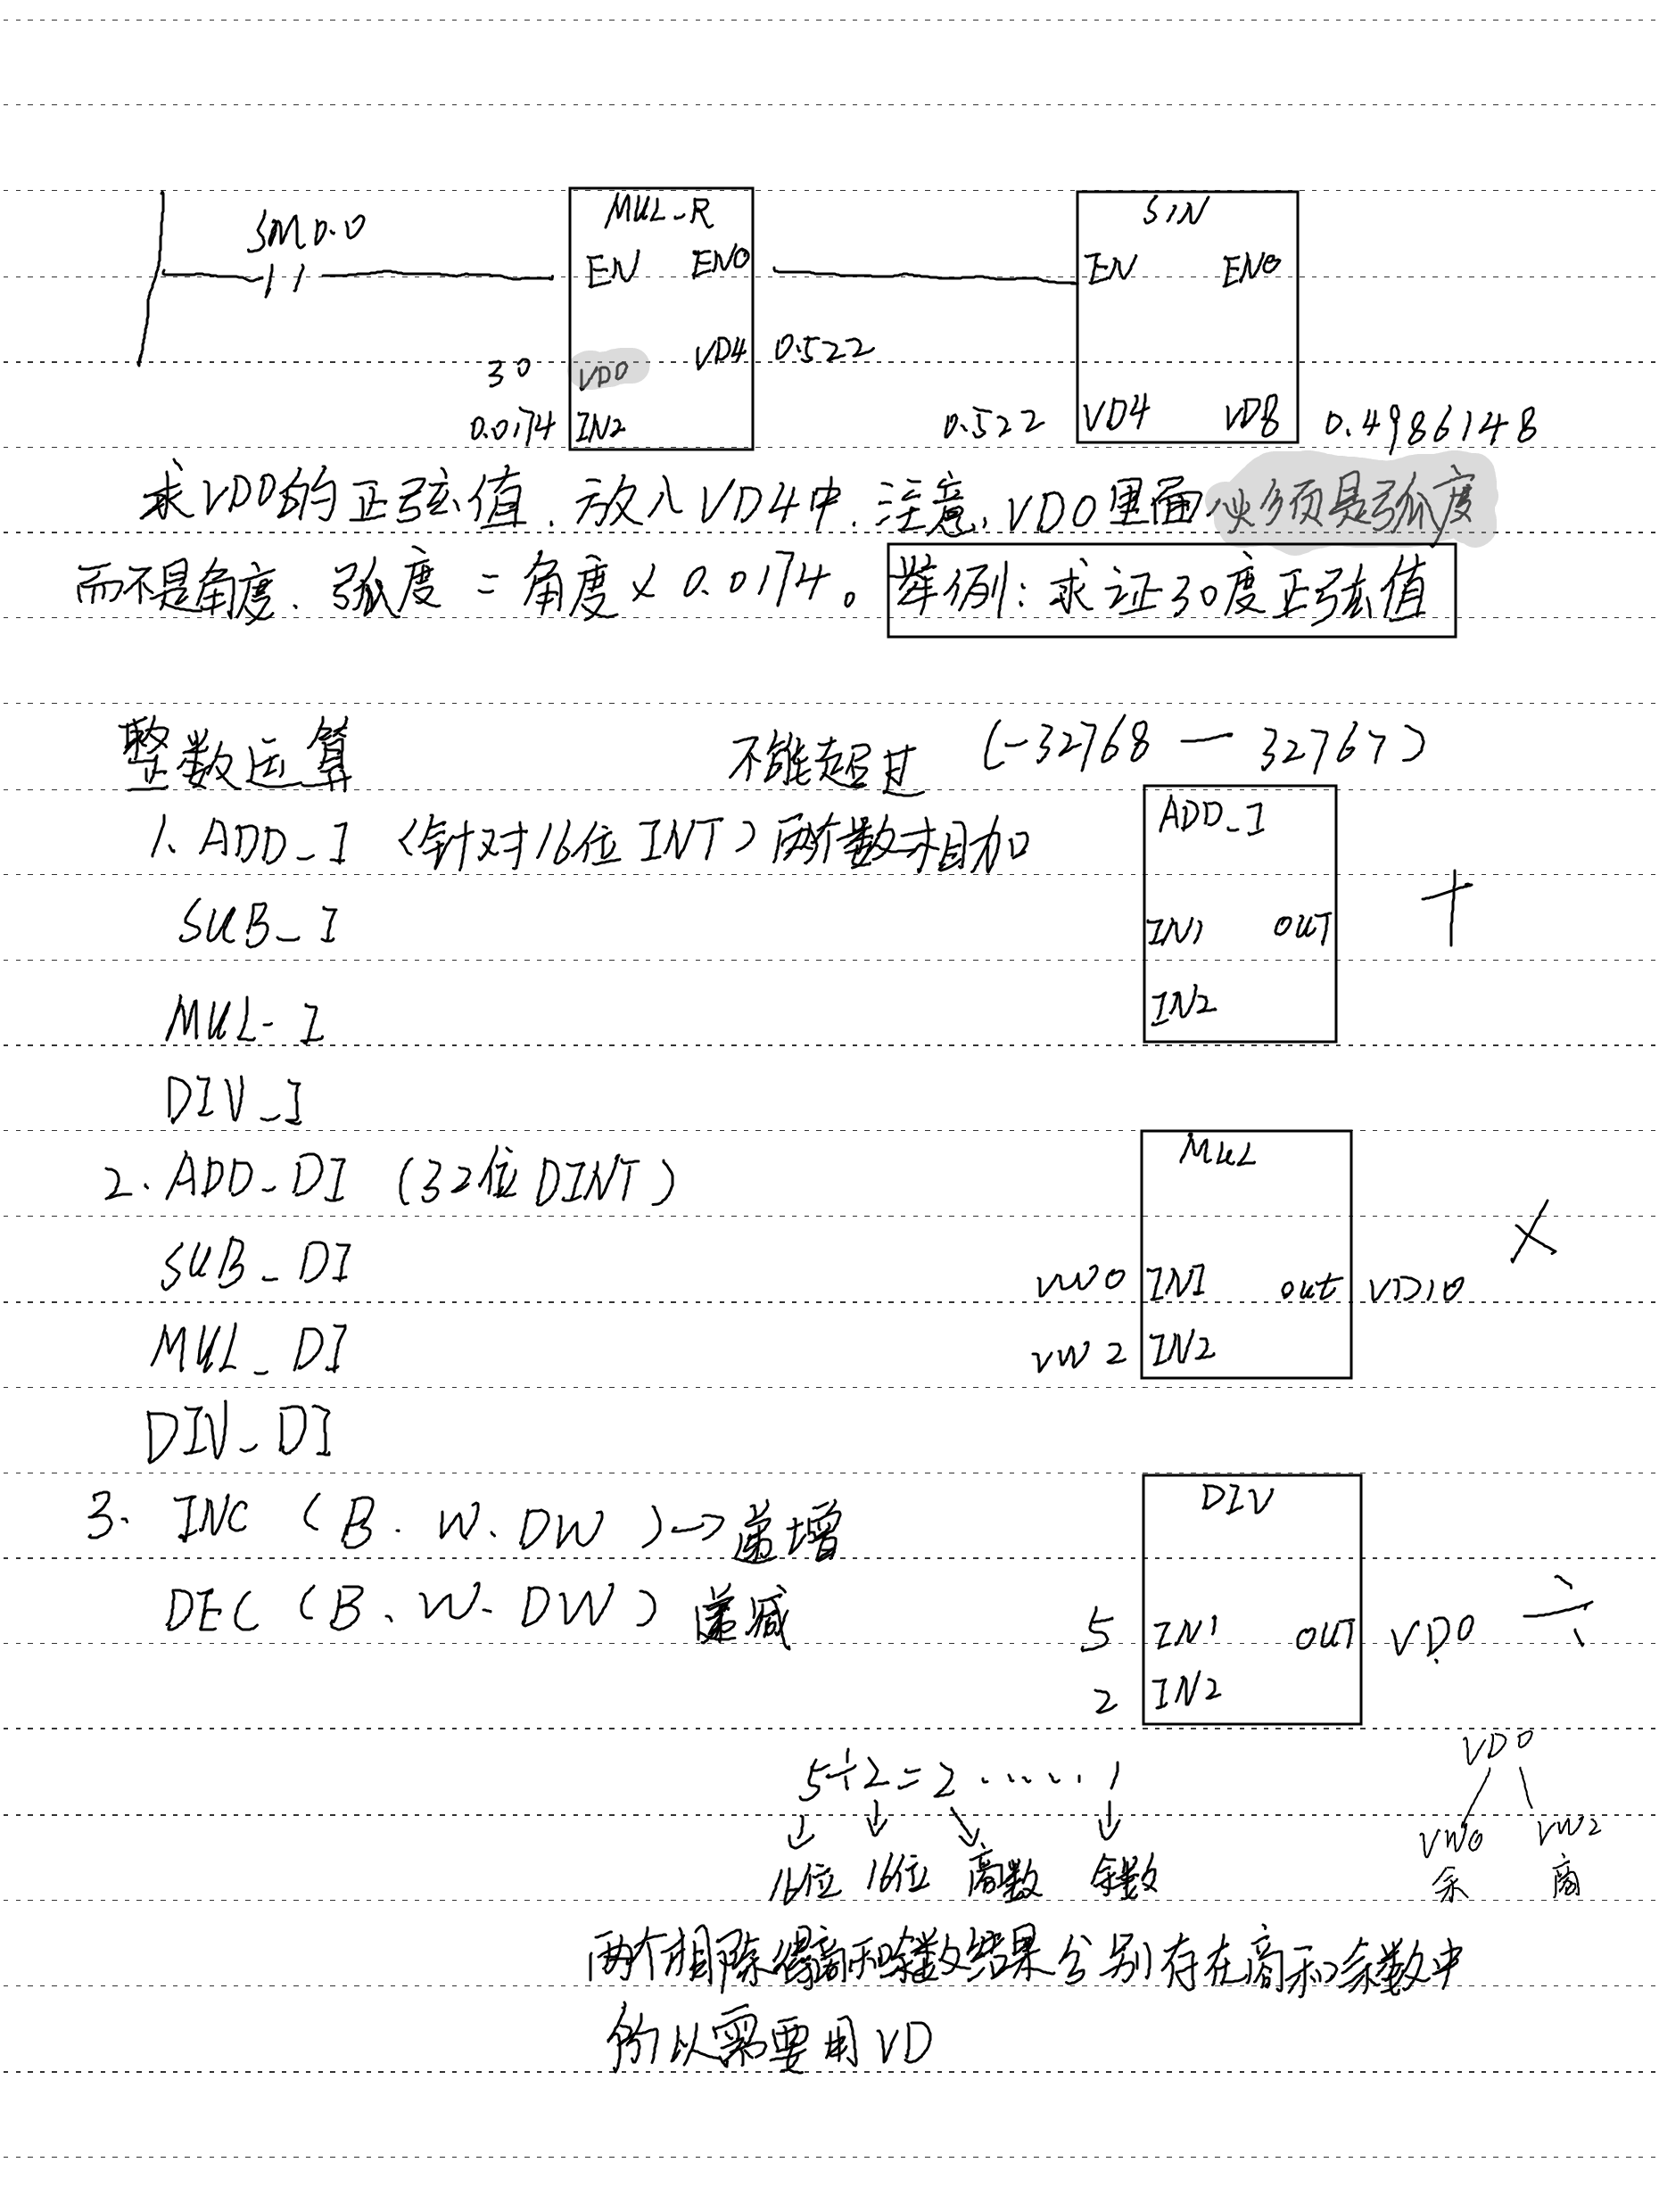 SM0.0
MUL_R
EN ENO
30 VD0 VD4 0.522
0.0174 IN2
SIN
EN ENO
0.522 VD4 VD8 0.4986148
求VD0的正弦值.放入VD4中.注意,VD0里面必须是弧度
而不是角度.弧度=角度×0.0174。举例:求证30度正弦值
整数运算 不能超过 (-32768 — 32767)
1、ADD_I (针对16位INT)两个数相加
SUB_I
MUL-I
DIV_I
ADD_I
IN1 OUT +
IN2
2.ADD_DI (32位DINT)
SUB_DI
MUL_DI
DIV_DI
MUL
VW0 IN1 out VD10 ×
VW2 IN2
3. INC (B.W.DW)→递增
DEC (B.W.DW)递减
DIV
5 IN1 OUT VD0 ÷
2 IN2
5÷2=2……1
16位 16位 商数 余数
VD0
VW0 VW2
余 商
两个相除得商和余数结果分别存在商和余数中
所以需要用VD